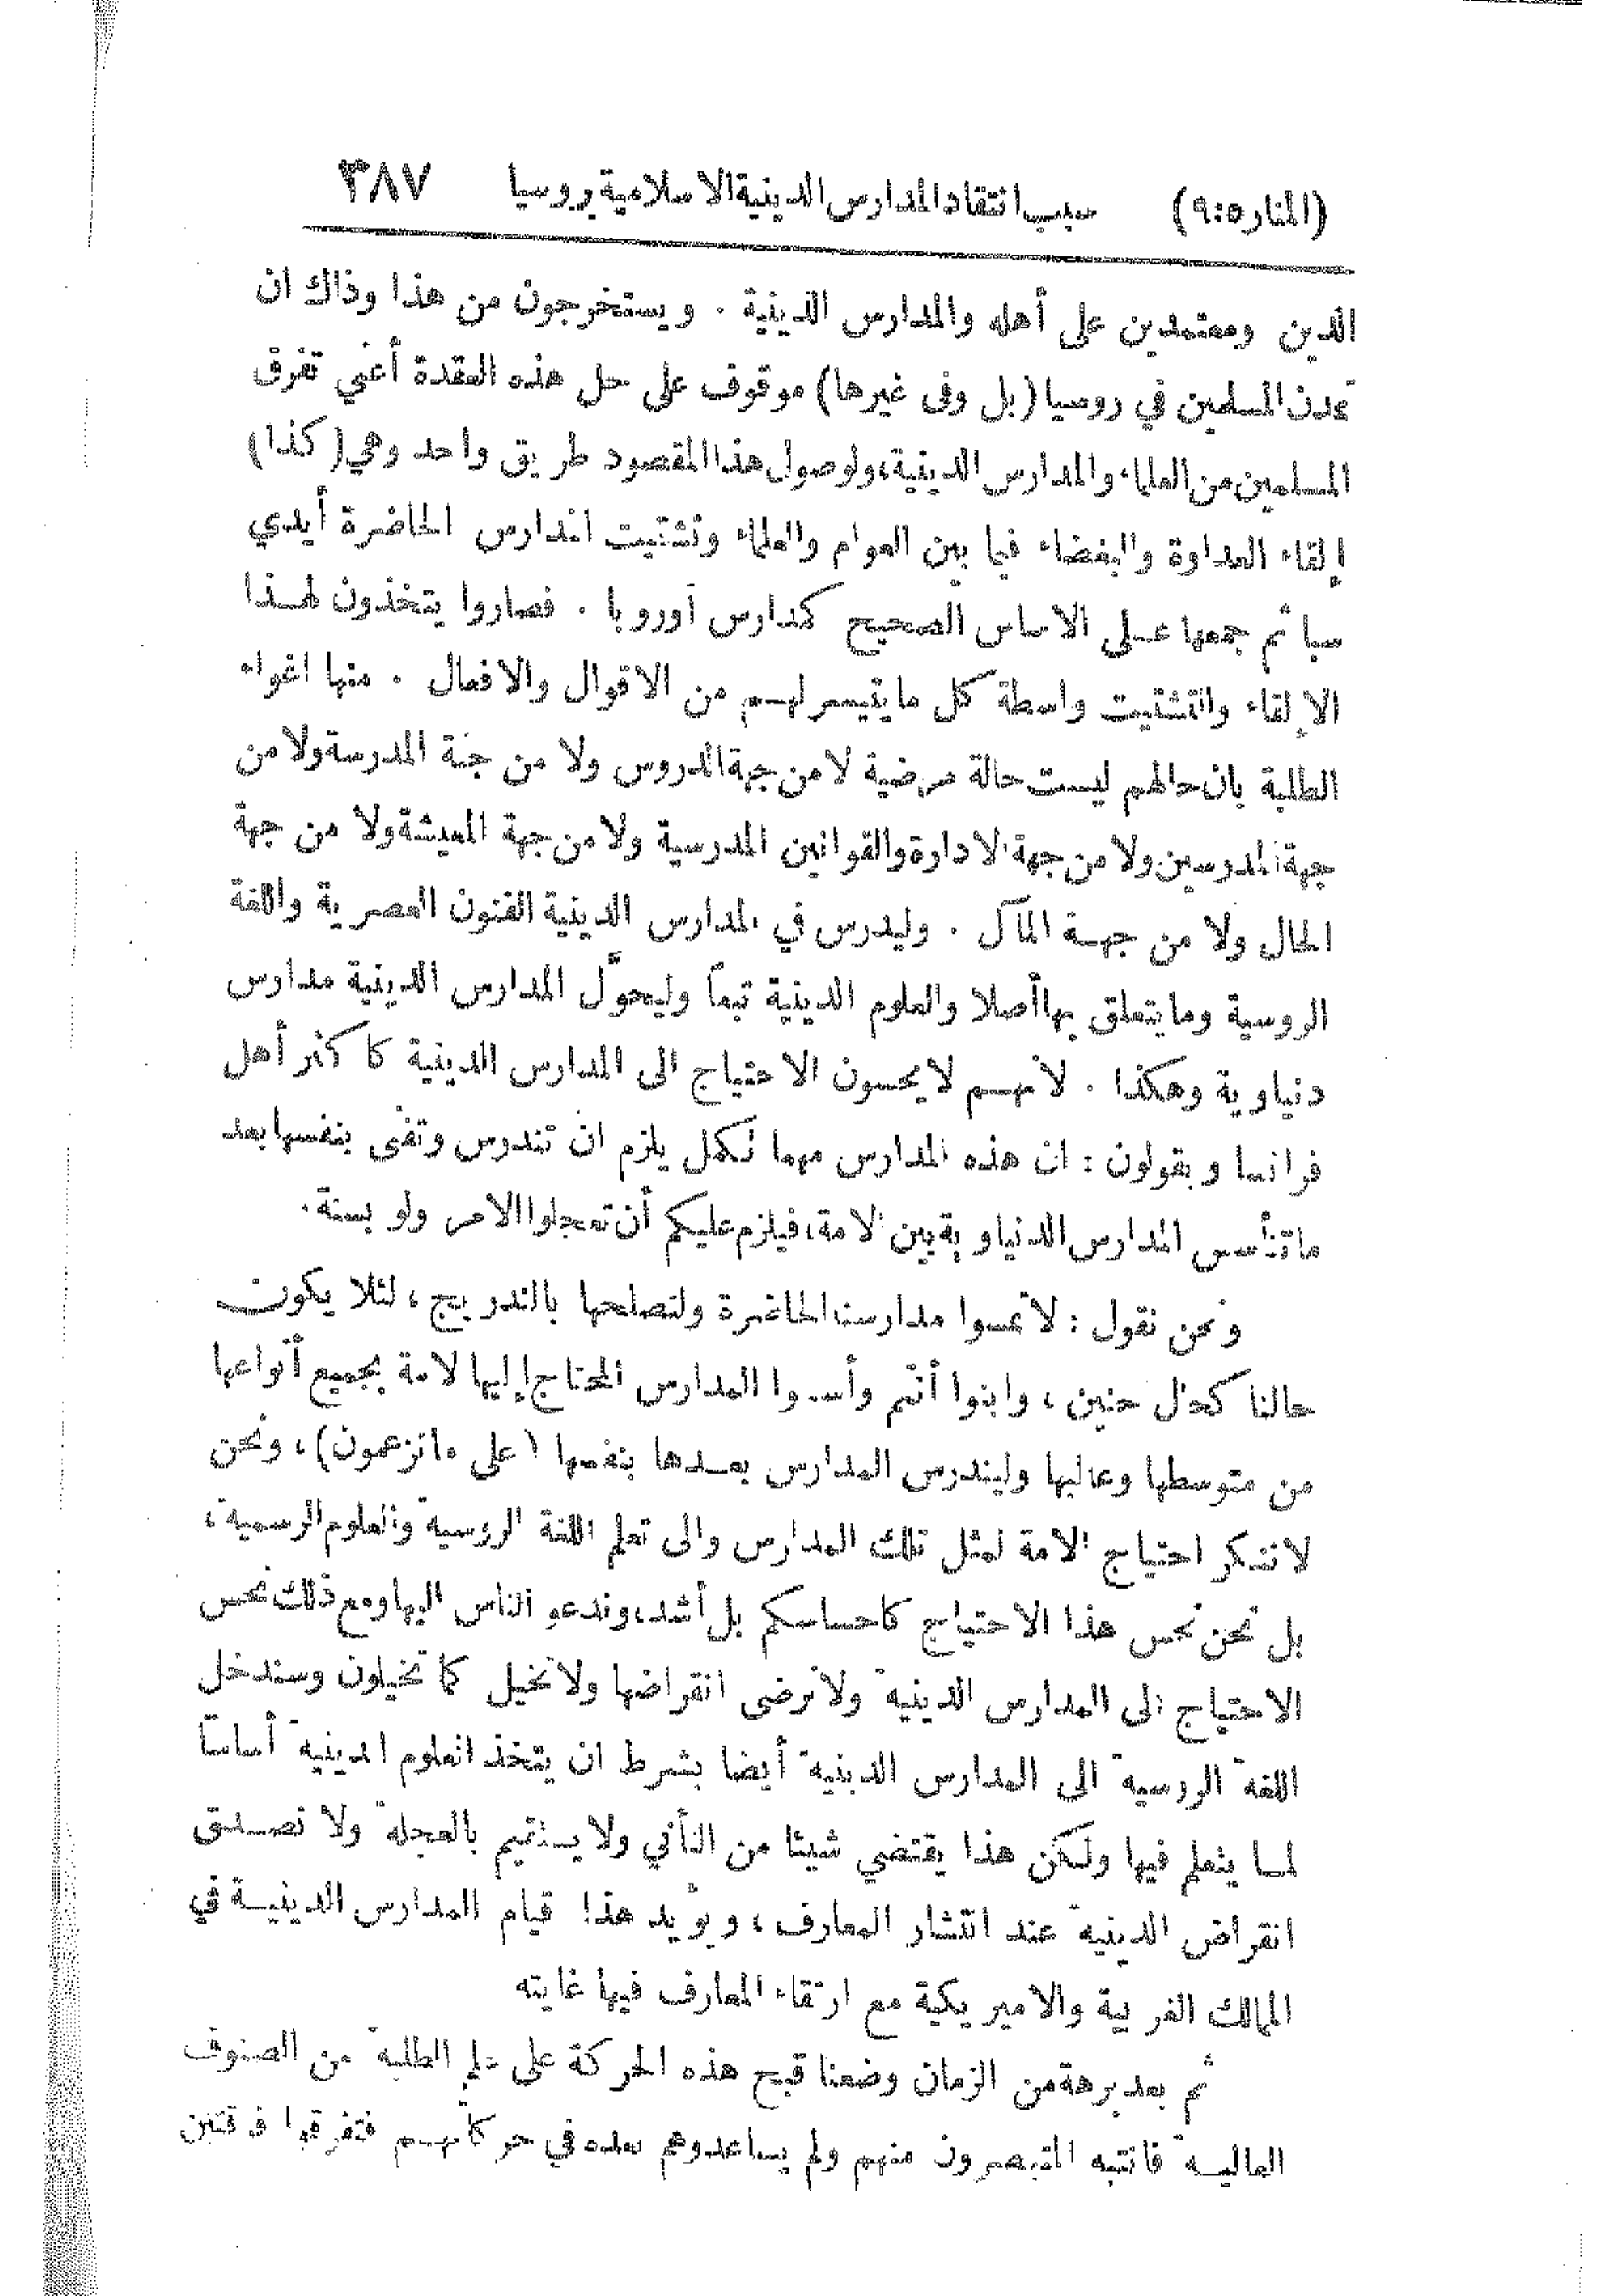 (المنار٥:٩) سبب انتقاد المدارس الدينية الاسلامية بروسيا ٣٨٧
الدين ومعتمدين على أهله والمدارس الدينية . ويستخرجون من هذا وذاك ان
تمدن المسلمين في روسيا (بل وفى غيرها) موقوف على حل هذه العقدة أعني تفرق
المسلمين من العلماء والمدارس الدينية، ولوصول هذا المقصود طريق واحد وهي (كذا)
إلقاء العداوة والبغضاء فيما بين العوام والعلماء وتشتيت المدارس الحاضرة أيدي
سبا ثم جمعها عـلى الاساس الصحيح كمدارس أوروبا . فصاروا يتخذون لهـذا
الإلقاء والتشتيت واسطة كل ما يتيسر لهـم من الاقوال والافعال . منها اغواء
الطلبة بان حالهم ليست حالة مرضية لا من جهة الدروس ولا من جهة المدرسة ولا من
جهة المدرسين ولا من جهة الادارة والقوانين المدرسية ولا من جهة المعيشة ولا من جهة
الحال ولا من جهـة المآل . وليدرس في المدارس الدينية الفنون العصرية واللغة
الروسية وما يتعلق بها أصلا والعلوم الدينية تبعاً وليحوَّل المدارس الدينية مدارس
دنياوية وهكذا . لأنهـم لا يحسون الاحتياج الى المدارس الدينية كاكثر أهل
فرانسا ويقولون : ان هذه المدارس مهما تكمل يلزم ان تندرس وتفنى بنفسها بعد
ما تتأسس المدارس الدنياوية بين الامة، فيلزم عليكم أن تعجلوا الامر ولو بسنة.
ونحن نقول : لا تمسوا مدارسنا الحاضرة ولنصلحها بالتدريج ، لئلا يكون
حالنا كحال حنين ، وابنوا أنتم وأسسوا المدارس المحتاج إليها الامة بجميع أنواعها
من متوسطها وعاليها وليندرس المدارس بعـدها بنفسها (على ما تزعمون) ، ونحن
لا ننكر احتياج الامة لمثل تلك المدارس والى تعلم اللغة الروسية والعلوم الرسمية ،
بل نحن نحس هذا الاحتياج كاحساسكم بل أشد، وندعو الناس اليها ومع ذلك نحس
الاحتياج الى المدارس الدينية ولا نرضى انقراضها ولا نخيل كما تخيلون وسندخل
اللغة الروسية الى المدارس الدينية أيضا بشرط ان يتخذ العلوم الدينية أساسًا
لمـا يتعلم فيها ولكن هذا يقتضي شيئا من التأني ولا يستقيم بالعجلة ولا نصـدق
انقراض الدينية عند انتشار المعارف ، ويؤيد هذا قيام المدارس الدينيـة في
الممالك الغربية والاميريكية مع ارتقاء المعارف فيها غايته
ثم بعد برهة من الزمان وضعنا قبح هذه الحركة على الطلبة من الصنوف
العاليـة فانتبه المتبصرون منهم ولم يساعدوهم بعده في حركاتهـم فتفرقوا فرقتين